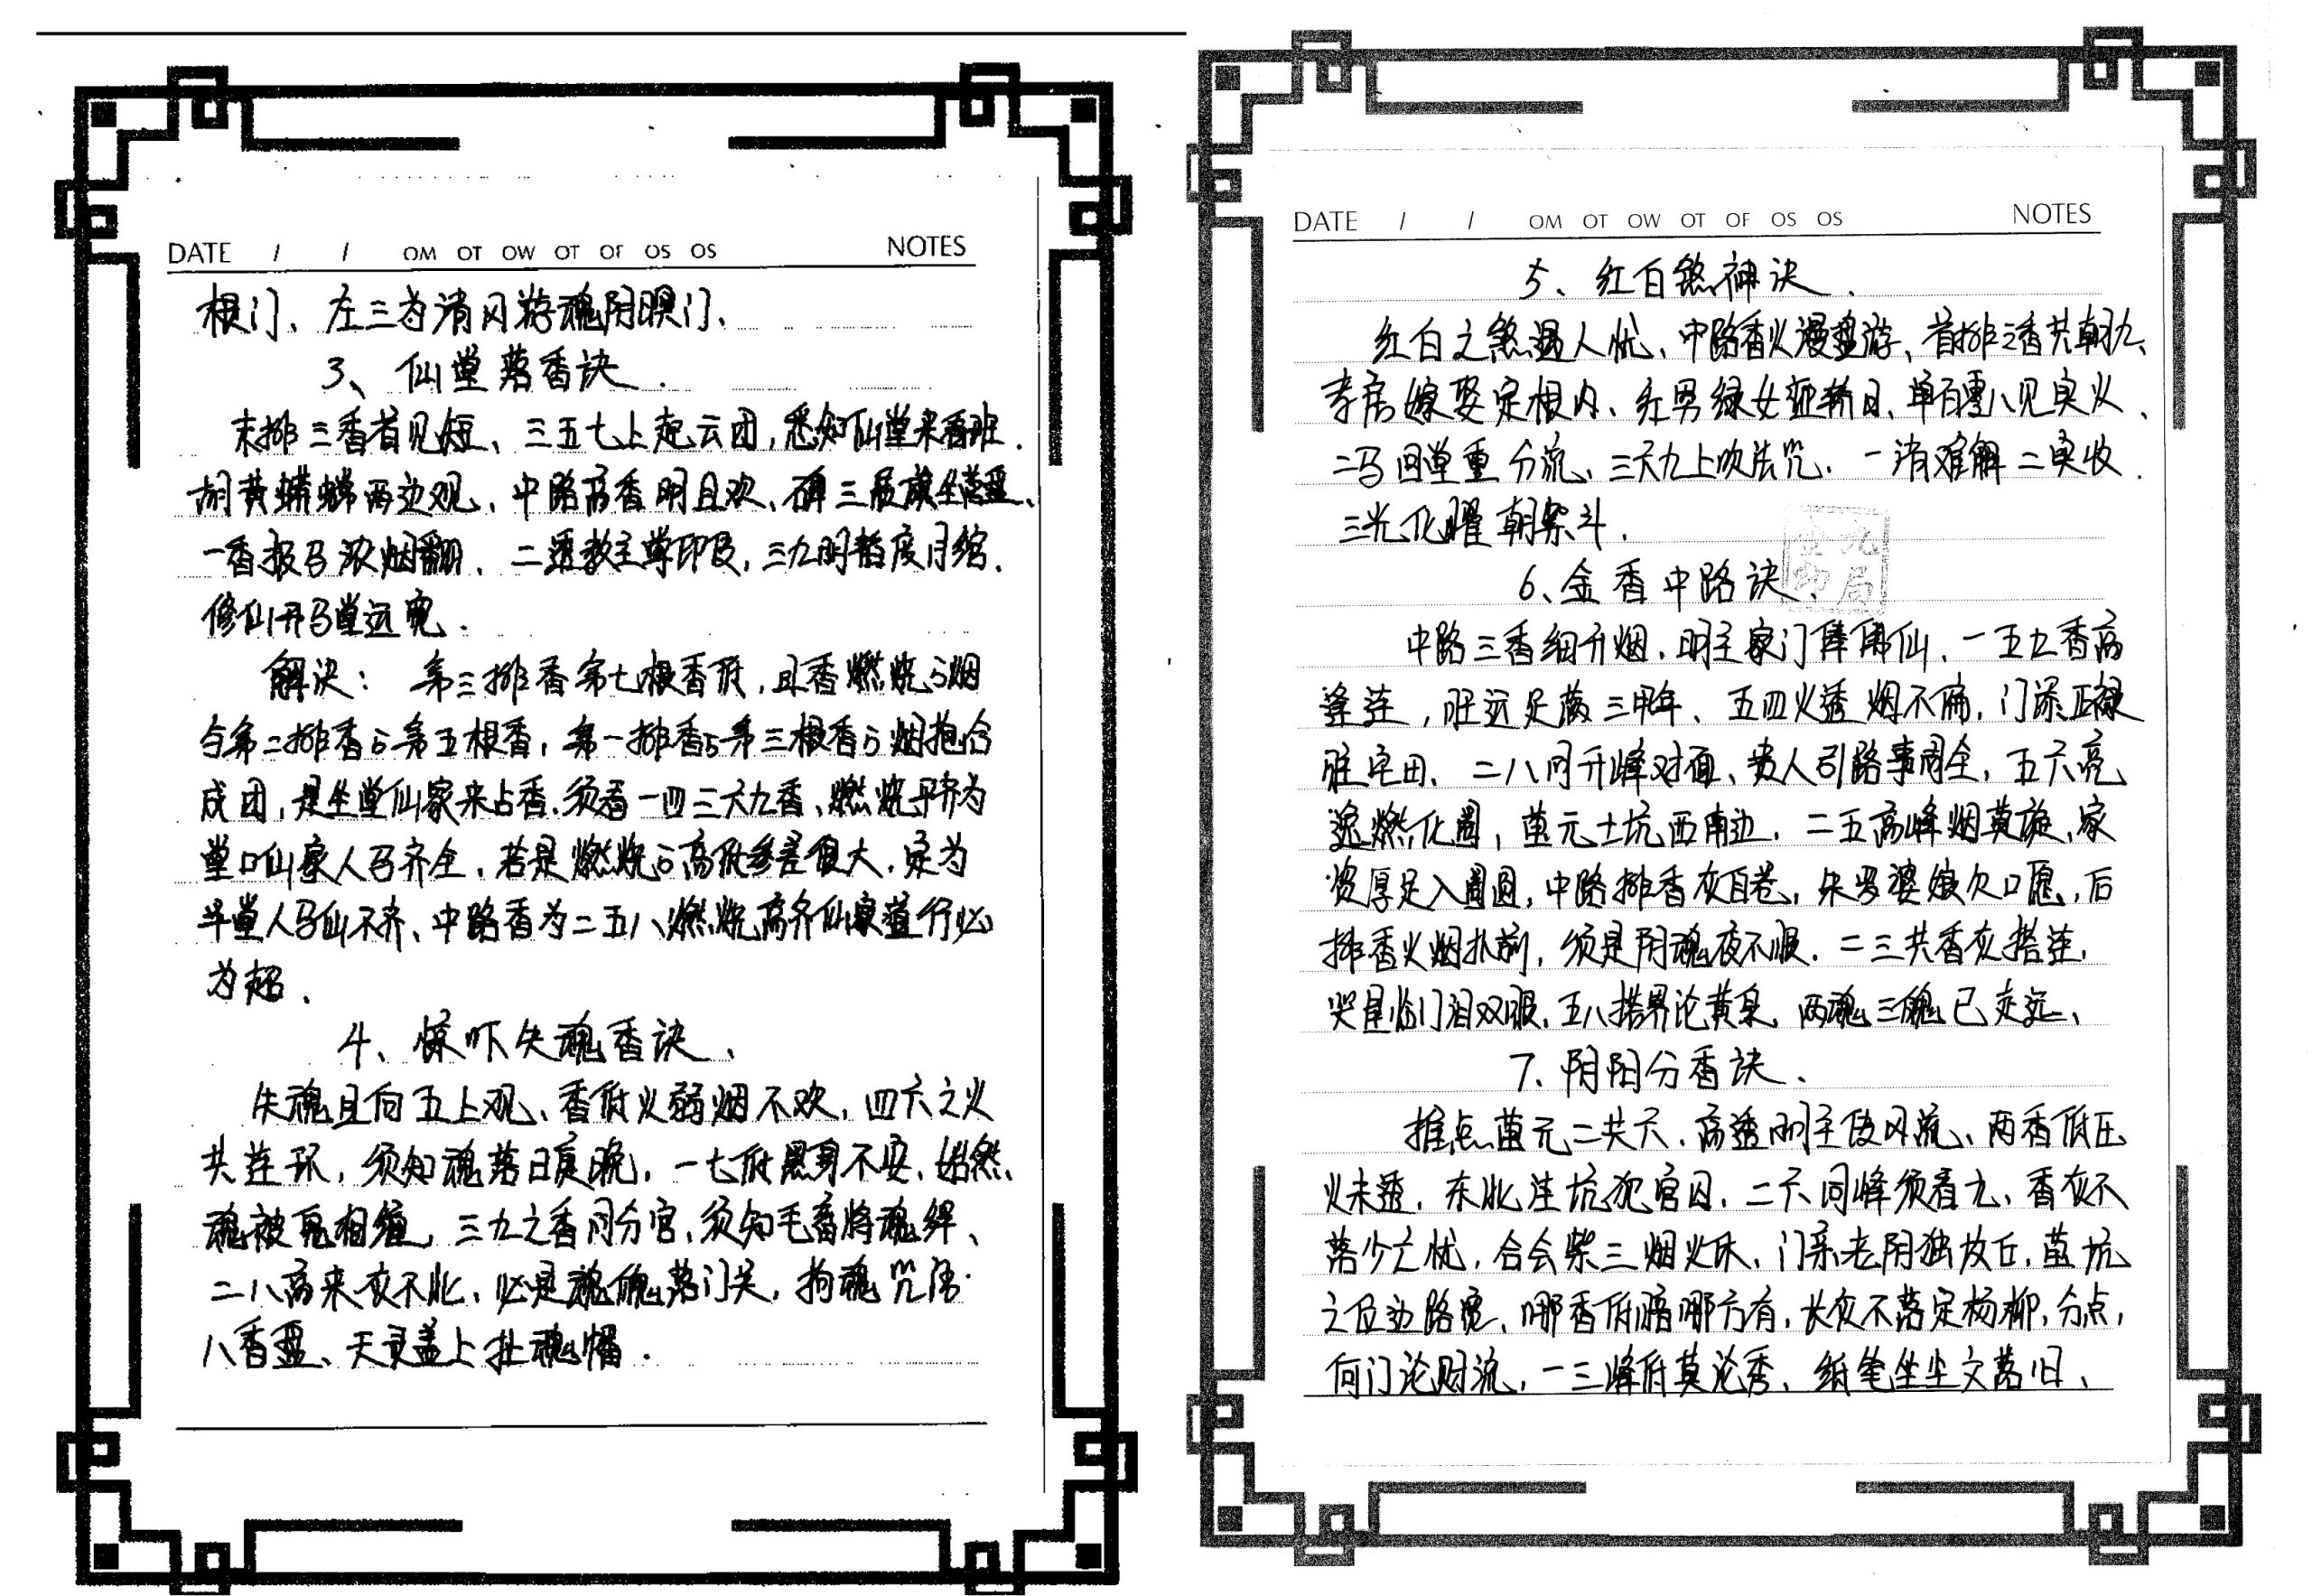 DATE / / OM OT OW OT OF OS OS NOTES
根门、左三为清风游魂阴眼门、
3、仙堂落香诀.
末排三香首见短、三五七上起云团,悉知仙堂来香班.
胡黄蟒蟒两边观、中路高香明且欢、碑三展旗坐莲盘、
一香报马浓烟翻、二透教主掌印段,三九明暗度月绾.
修仙开马堂运宽.
解决:第三排香第七根香低,且香燃烧的烟
与第二排香的第五根香,第一排香的第三根香的烟抱合
成团,是坐堂仙家来占香.须看一四三六九香、燃烧平齐为
堂口仙家人马齐全,若是燃烧的高低参差很大,定为
半堂人马仙不齐、中路香为二五八燃烧高齐仙家道行必
为超.
4、惊吓失魂香诀、
失魂且向五上观、香低火弱烟不欢,四六之火
共连环,须知魂落日度晚,一七低黑身不安,始然、
魂被鬼相缠,三九之香同分宫,须知毛畜将魂绊、
二八高来灰不北、必是魂魄落门关,拘魂咒语
八香盈、天灵盖上扯魂幡.
DATE / / OM OT OW OT OF OS OS NOTES
5、红白煞神诀.
红白之煞遇人忧、中路香火漫盘游、首排之香共朝九、
孝房嫁娶定根内、红男绿女迎轿日、单百零八见臾火、
二马回堂重分流、三六九上吹法咒.一清难解二臾收.
三光化曜朝紫斗.
6、金香中路诀、
金九印局
中路三香细升烟,明主家门俸佛仙、一五九香高
峰连,旺运足满三甲年、五四火透烟不偏,门添正禄
旺宅田、二八同升峰对面、贵人引路事周全,五六亮
透燃化圈,茔元土坑西南边.二五高峰烟莫旋、家
资厚足入圈圆,中路排香灰自卷,朱罗婆娘欠口愿,后
排香火烟扑前,须是阴魂夜不眠.二三共香灰搭连,
哭星临门泪双眼、五八搭界论黄泉,两魂三魄已走远、
7、阴阳分香诀、
推点茔元二共六.高透明主使风流、两香低压
火未透,东北洼坑犯宫囚.二六同峰须看九、香灰不
落少亡忧,合会柴三烟火休、门亲老阴独坟丘,茔坑
之位边路宽、哪香低暗哪方有,长灰不落定杨柳,分点,
何门论财流,一三峰低莫论秀、纸笔坐尘文落旧、